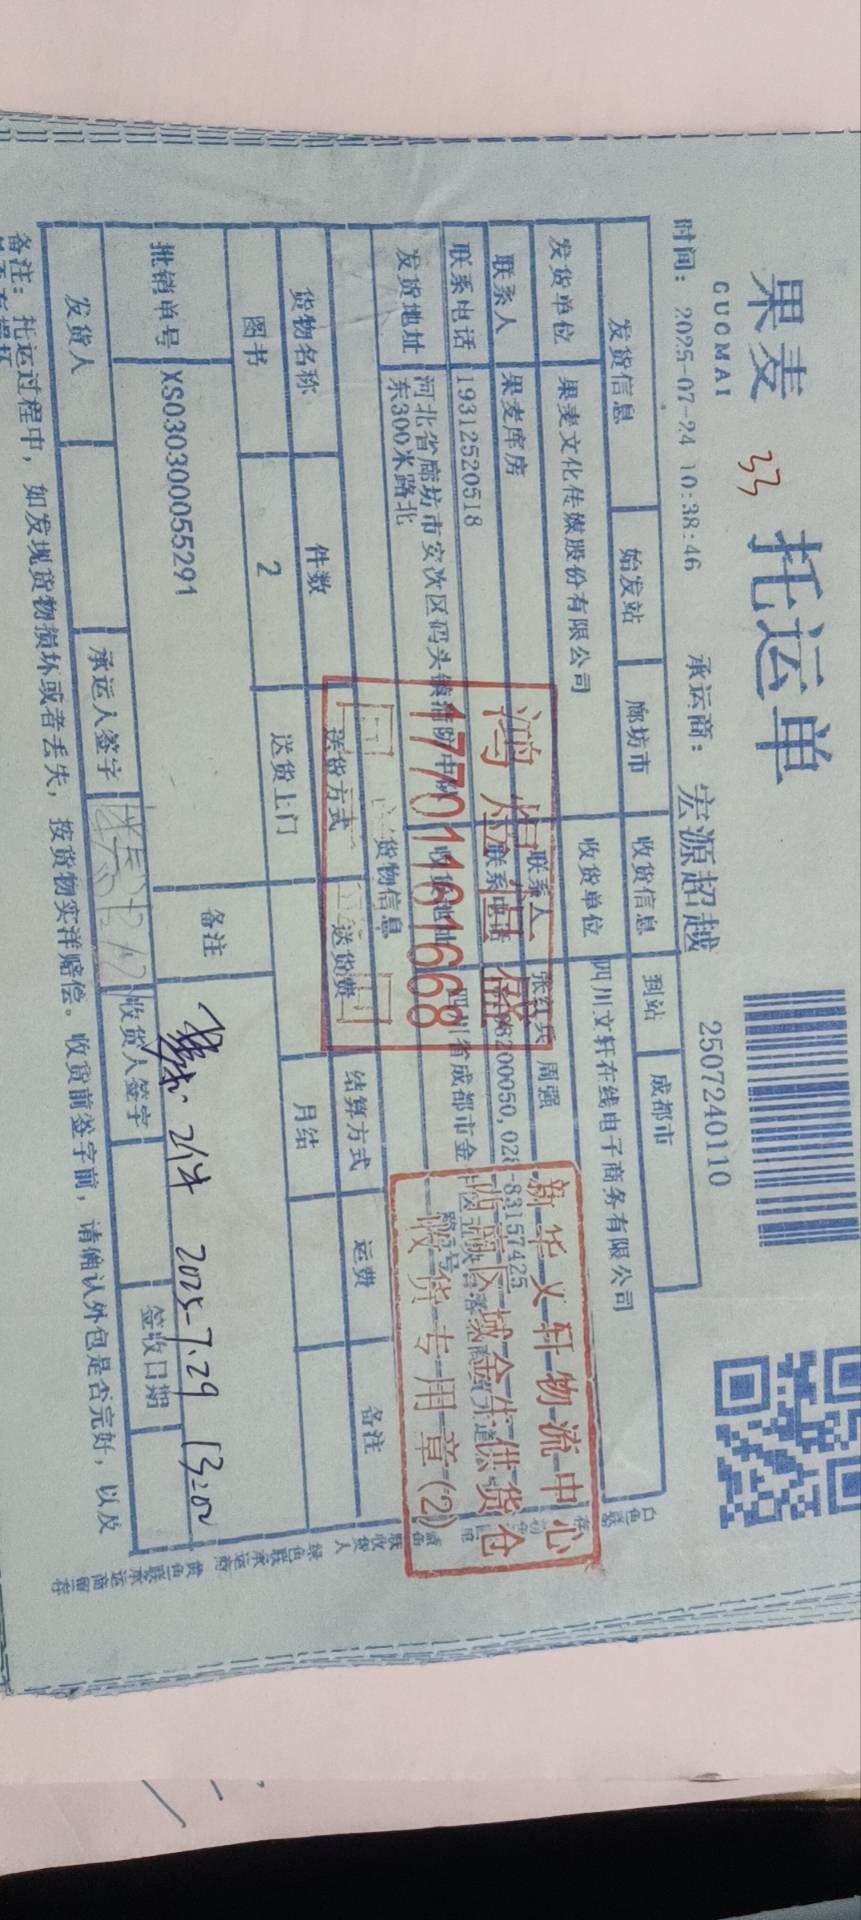 果麦
GUOMAI
33
托运单
时间：2025-07-24 10:38:46
承运商：宏源超越
2507240110
发货信息 始发站 廊坊市 收货信息 到站 成都市
发货单位 果麦文化传媒股份有限公司 收货单位 四川文轩在线电子商务有限公司
联系人 果麦库房 联系人 张红兵 周强
联系电话 19312520518 联系电话
-83157425
发货地址 河北省廊坊市安次区码头镇
东300米路北
收货地址 四川省成都市金
货物信息
货物名称 件数 送货方式 送货费 结算方式 运费 备注
图书 2 送货上门 月结
批销单号 XS030300055291 备注
2件 2025.7.29 13:20
发货人 承运人签字 收货人签字 签收日期
备注：托运过程中，如发现货物损坏或者丢失，按货物实洋赔偿。收货前签字前，请确认外包是否完好，以及
17701161668
新华文轩物流中心
西南区域金牛供货仓
收货专用章(2)
白色联
绿色联承运商
黄色联承运商留存